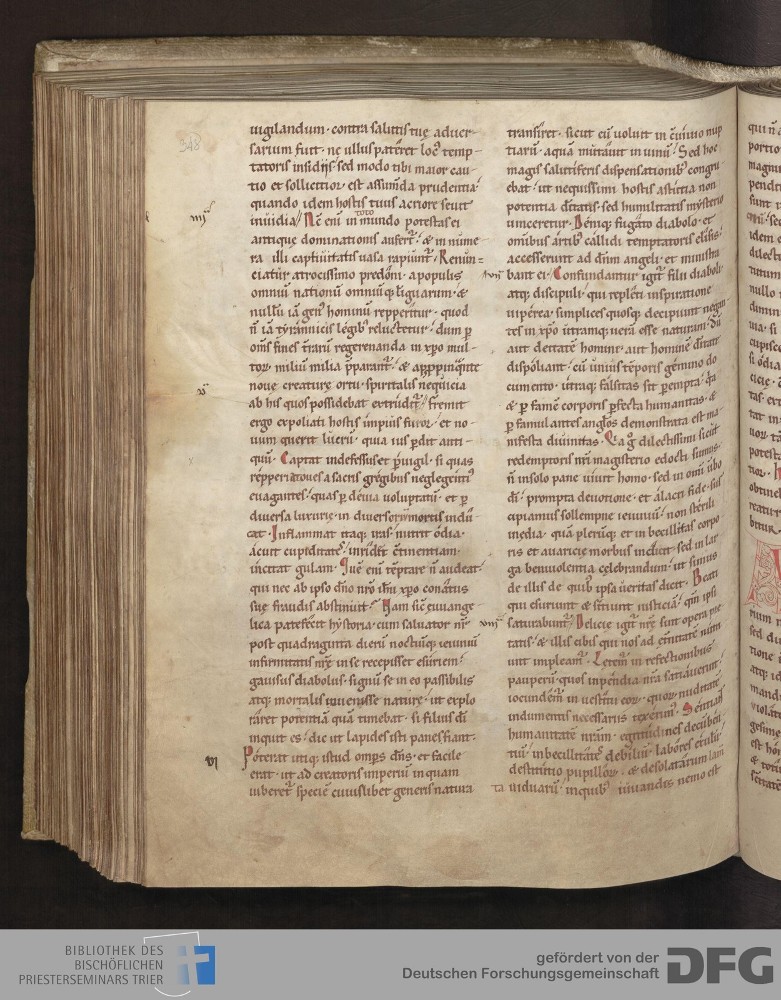 348
uigilandum· contra salutis tuę aduer-
sarium fuit· ne ullus pateret̄ loc᷒ temp-
tatoris insidijs· sed modo tibi maior cau-
tio et sollicitior· est assum̄da prudentia·
quando idem hostis tuus acriore seuit
inuidia· Nc̄ eni in toto mundo potestas ei
antique dominationis aufert̄· & in nume-
ra illi captiuitatis uasa rapiunt̄· Renun-
ciatur atrocissimo predoni· a populis
omniū nationū omniūq; liguarum· &
nullū iā gen᷒ hominū repperitur· quod
n̄ iā tẏrannicis legib᷒ reluctetur· dum ꝑ
om̄s fines t̄rarū regerenanda in xp̄o mul-
tor milium milia p̄parant̄· & appropinq̄nte
noue creaturę ortu· spiritalis neq̇icia
ab his quos possidebat extrudit̄· fremit
ergo expoliati hostis impius furor· et no-
uum querit lucrū· quia ius ꝑdit anti-
quū· Captat indefessus et ꝑuigil· si quas
reppererit oues a sacris gregibus neglegenti᷒
euagantes· quas ꝑ deuia uoluptatū· et ꝑ
diuersa luxurię· in diuersoria mortis indu-
cat· Inflammat itaq; iras· nutrit odia·
acuit cupiditates· inridet c̄tinentiam·
incitat gulam· Quē eni tēptare n̄ audeat·
qui nec ab ipso dn̄o nr̄o ih̄u xp̄o conatus
suę fraudis abstinuit· Nam sic̄ euuange-
lica patefecit hẏstoria· cum saluator nr̄
post quadraginta dierū noctiūq; ieiuniū
infirmitatis nr̄ę in se recepisset esuriem·
gauisus diabolus· signū se in eo passibilis
atq; mortalis inuenisse naturę· ut explo
raret potentiā quā timebat· si filius di
inquit es· dic ut lapides isti panes fiant·
Poterat utiq; istud omp̄s dn̄s· et facile
erat· ut ad creatoris imperiū in quam
iuberet̄ speciē cuiuslibet generis natura
iiij
v
vi
transiret· sicut cū uoluit in c̄uiuio nup
tiarū· aquā mutauit in uinū· Sed hoc
magis salutiferis dispensationib᷒ congru
ebat· ut nequissimi hostis astutia non
potentia ditatis· sed humilitatis mẏsterio
uinceretur· Deniq; fugato diabolo· et
omnib᷒ artib᷒ callidi temptatoris elisis·
accesserunt ad dn̄m angeli· et ministra
bant ei· Confundantur igit̄ filii diaboli
atq; discipuli· qui repleti inspiratione
uiperea· simplices quosq; decipiunt negan
tes in xp̄o utramq; uerā esse naturam· Dū
aut deitatē homine· aut hominē ditate
dispoliant· cū unius tēporis gemino do
cumento· utraq; falsitas sit ꝑempta· q̄a
& ꝑ famē corporis ꝑfecta humanitas· &
ꝑ famulantes anglos demonstrata est ma
nifesta diuinitas· Q̄a g̊ dilectissimi sicut
redemptoris nr̄i magisterio edocti sumus·
n̄ in solo pane uiuit homo· sed in om̄i ūbo
di· prompta deuotione· et alacri fide· sus
cipiamus sollempne ieiuniū· non sterili
inedia· quā plerūq; et in becillitas corpo
ris et auaricię morbus indicit· sed in lar
ga beniuolentia celebrandum· ut simus
de illis de quib᷒ ipsa ueritas dicit· Beati
qui esuriunt & sitiunt iusticiā· qm̄ ipsi
saturabunt̄· Delicię igit̄ nr̄ę sunt opera pie
tatis· & illis cibis qui nos ad et̄nitatē nutri
unt impleam̄· Letem̄ in refectionibus
pauperū· quos inpendia nr̄a satiauerint·
iocundem̄ in uestitu eor· quor nuditatē
indumentis necessariis texerim᷒· Sentiant
humanitatē nr̄am· egritudines decūben
tiū· inbecillitates debiliū· labores exulū·
destitutio pupillor· & desolatarum lam
ta uiduarū· inquib᷒ iuuandis nemo est
BIBLIOTHEK DES
BISCHÖFLICHEN
PRIESTERSEMINARS TRIER
gefördert von der
Deutschen Forschungsgemeinschaft
DFG